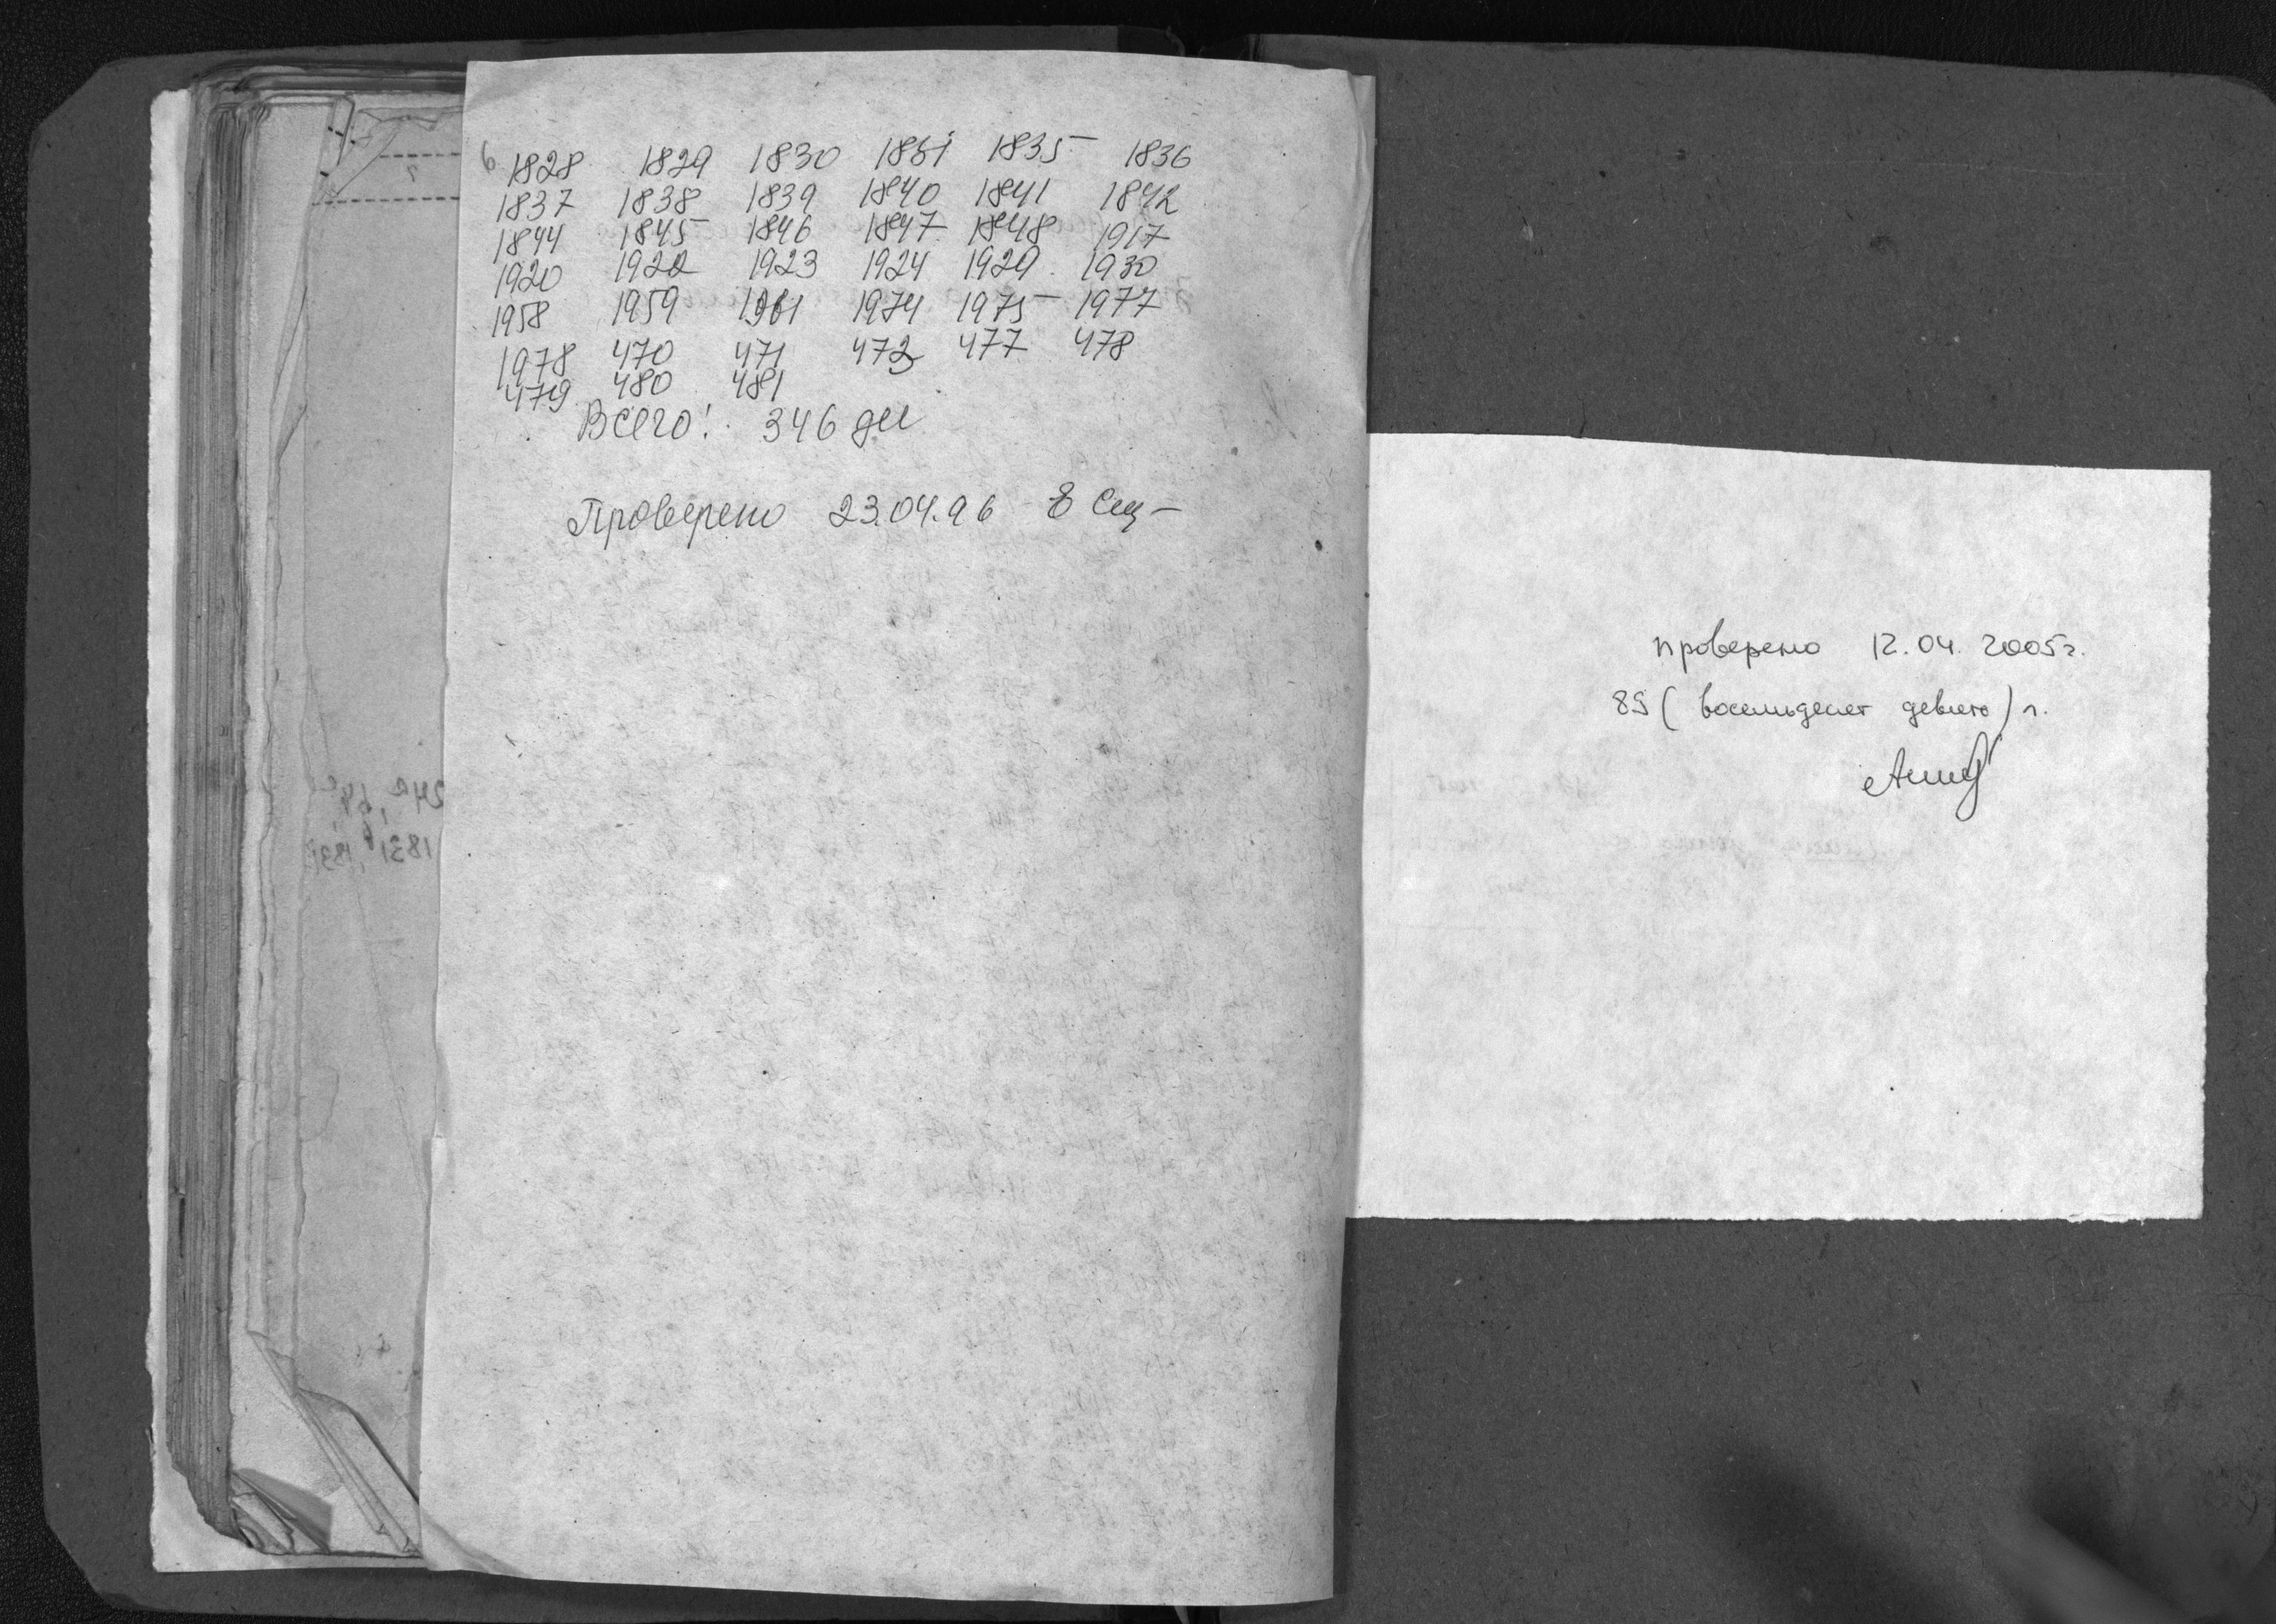 1828 1829 1830 1831 1835 1836
1837 1838 1839 1840 1841 1842
1844 1845 1846 1847 1848 1917
1920 1922 1923 1924 1929 1930
1958 1959 1961 1974 1975 1977
1978 470 471 472 477 478
479 480 481
Всего: 346 дел
Проверено 23.04.96
проверено 12.04.2005г.
89 (восемьдесят девять) л.